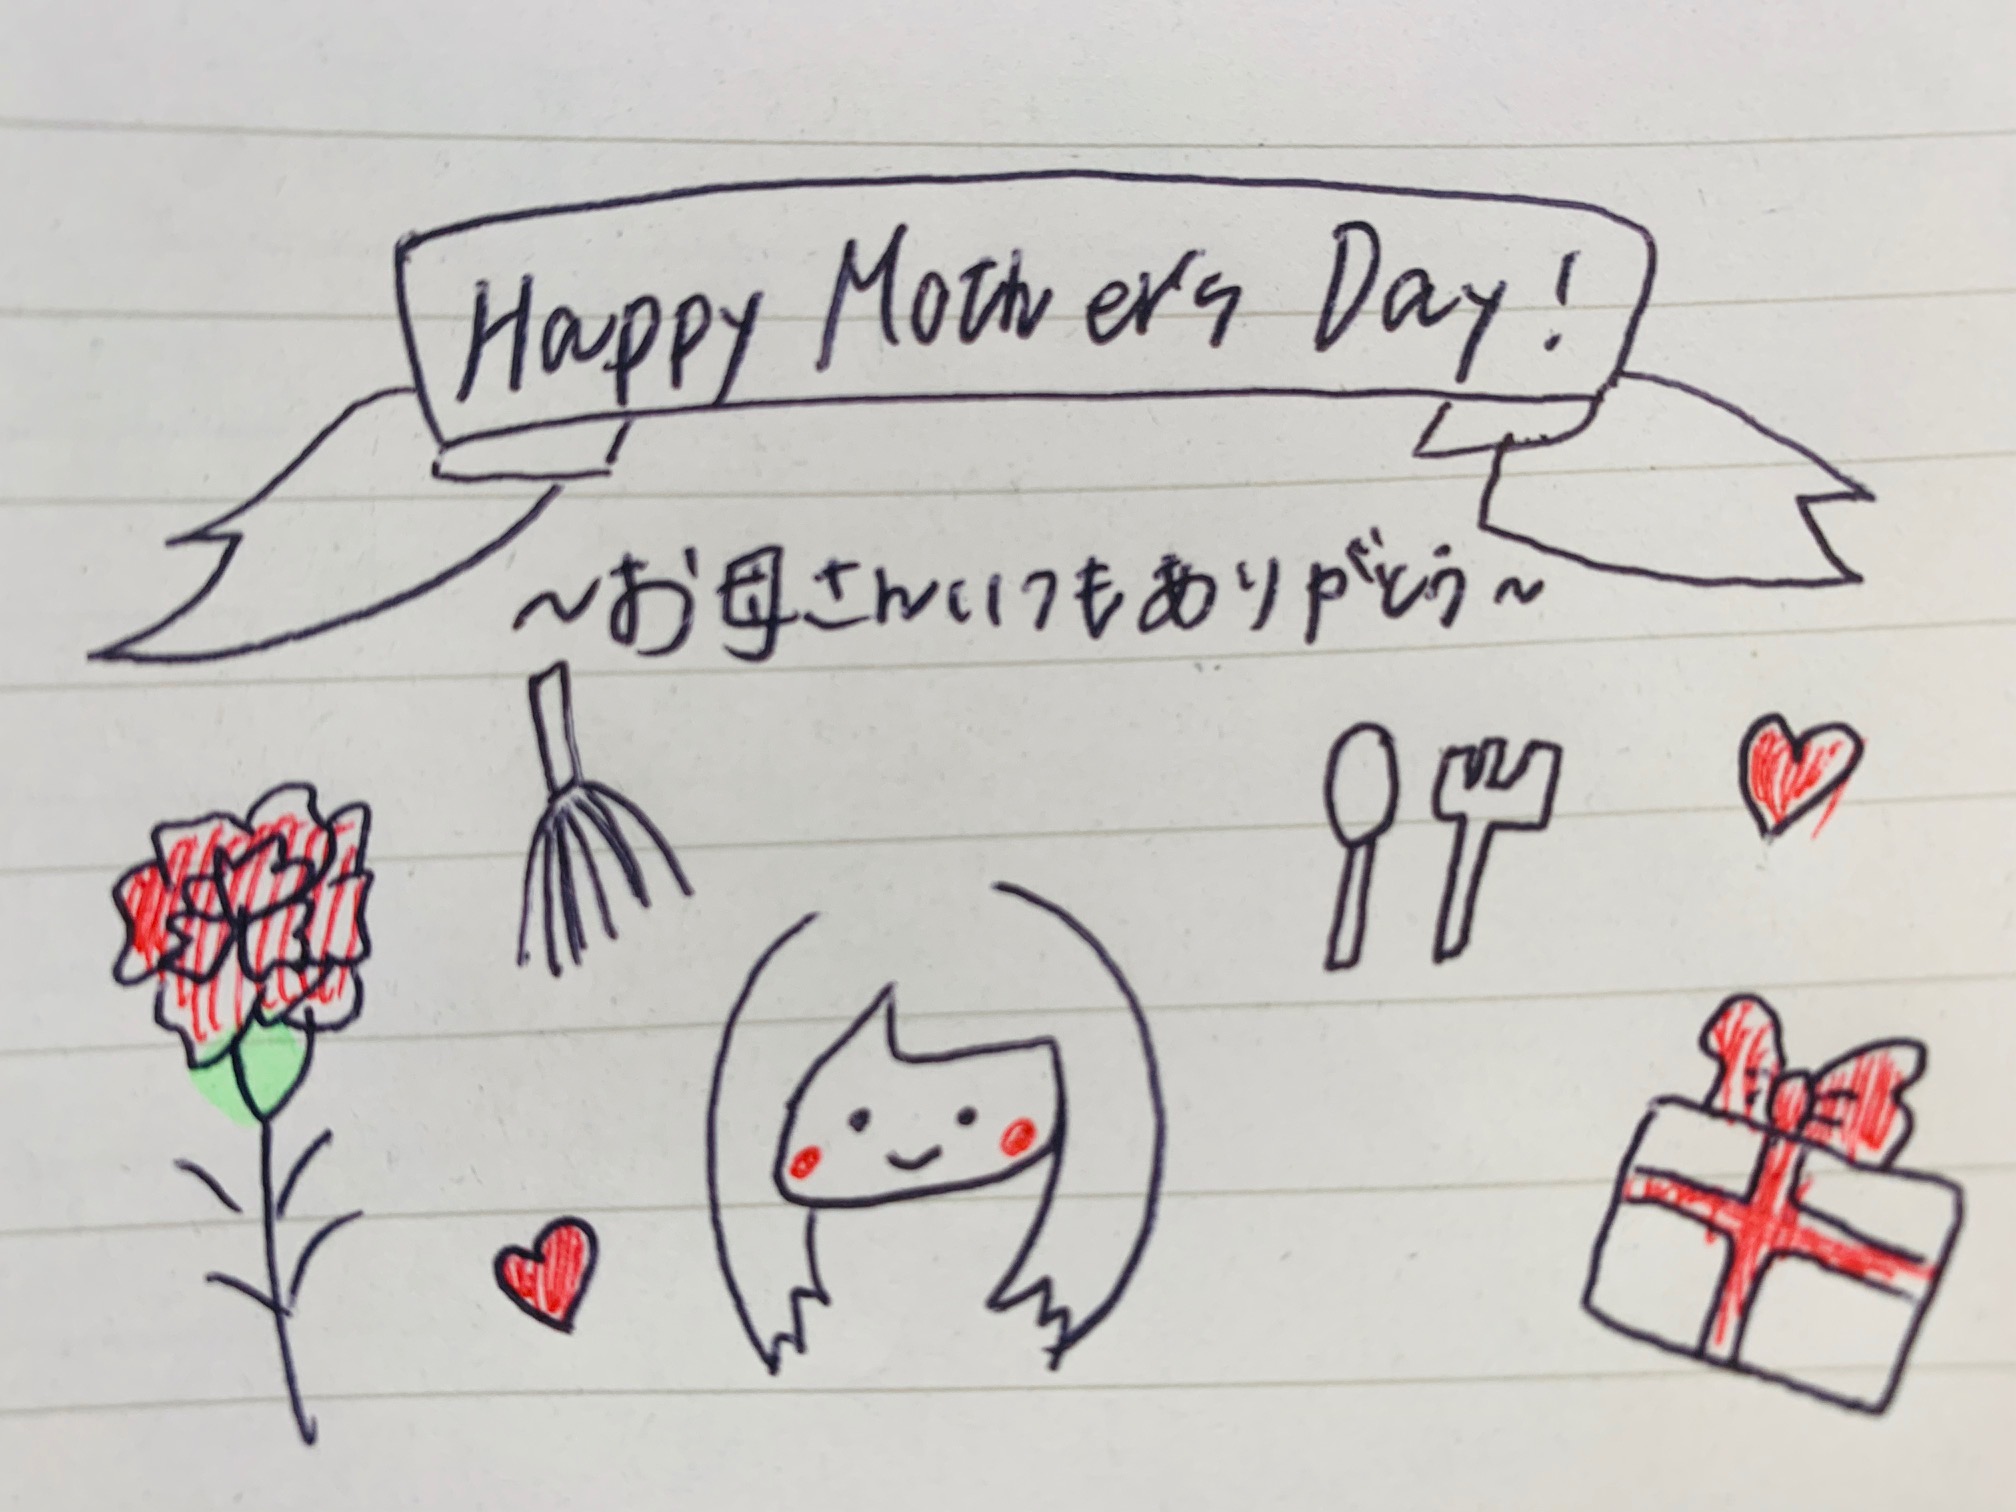 Happy Mother's Day!
～お母さんいつもありがとう～